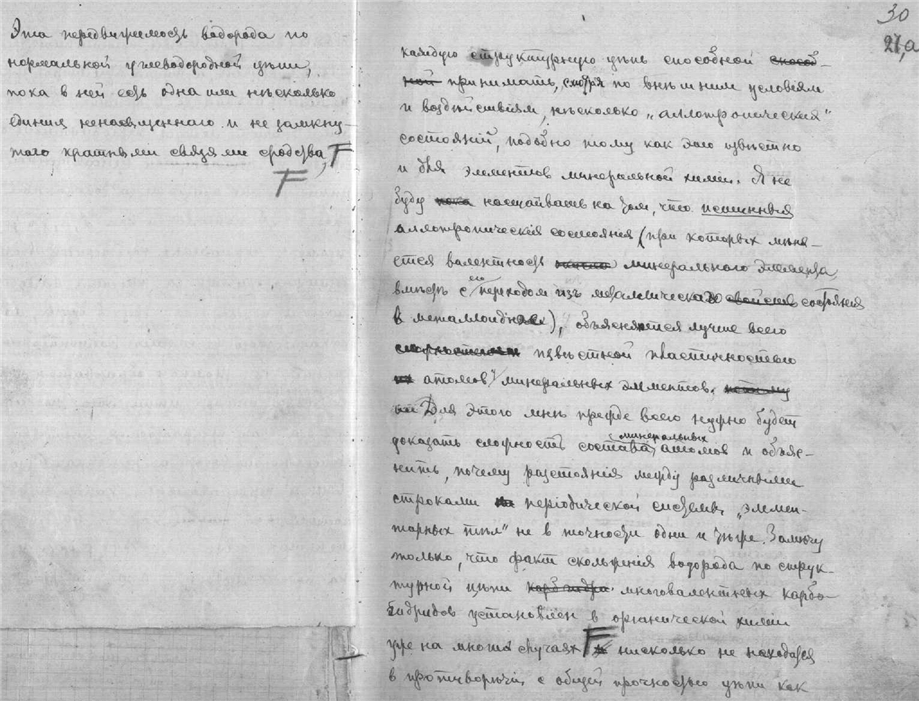 Эта передвигаемость водорода по
нормальной углеводородной цѣпи,
пока в ней есть одна или нѣсколько
единиц ненасыщеннаго и не замкну-
таго кратными связями сродства, F
F
30
27,а
каждую структурную цѣпь способной способ-
ной принимать, смотря по внѣшним условіям
и воздѣйствіям, нѣсколько „аллотропических"
состояній, подобно тому как это извѣстно
и для элементов минеральной химіи. Я не
буду пока настаивать на том, что истинныя
аллотропическія состоянія (при которых мѣня-
ется валентность минеральнаго элемента,
вмѣстѣ с его переходом из металлическаго свойств состоянія
в металлоидное), объясняются лучше всего
извѣстной пластичностью
их атомов минеральных элементов. потому
Для этого мнѣ прежде всего нужно будет
доказать сложность состава минеральных атомов и объяс-
нить, почему разстоянія между различными
строками періодической системы „элемен-
тарных тѣл" не в точности одни и тѣ же. Замѣчу
только, что факт скольженія водорода по струк-
турной цѣпи карбгидра многовалентных карбо-
гидридов установлен в органической химіи
уже на многих случаях F нисколько не находится
в противорѣчіи с общей прочностью цѣпи как